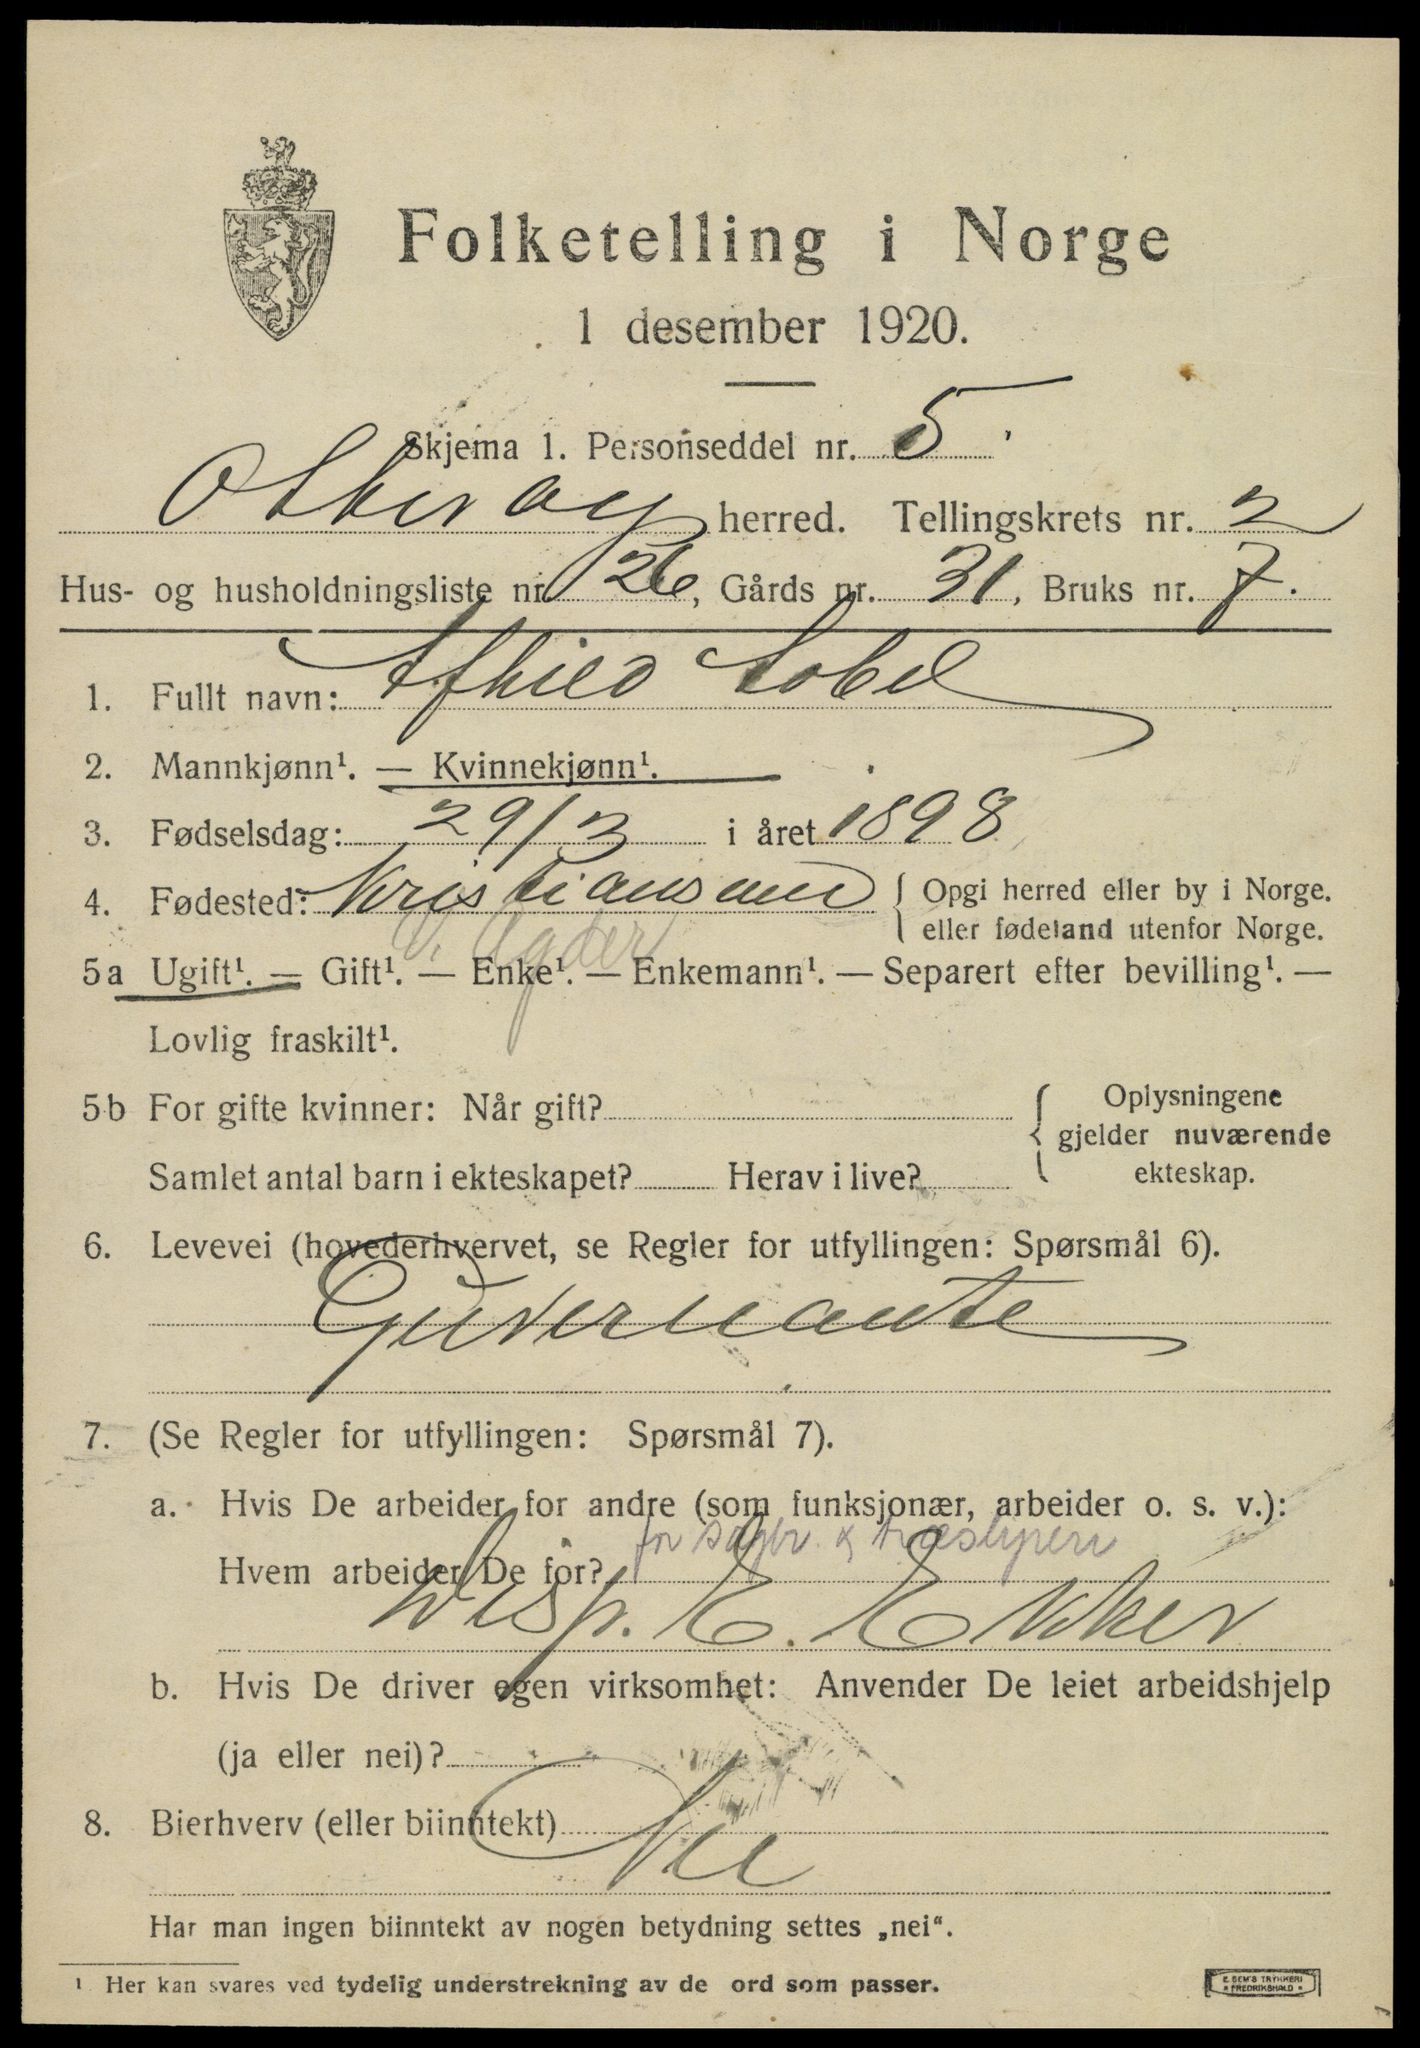 Folketelling i Norge
1 desember 1920.
Skjema 1. Personseddel nr. 5.
Otterøy herred. Tellingskrets nr. 2
Hus- og husholdningsliste nr. 26, Gårds nr. 31, Bruks nr. 7.
1. Fullt navn:
2. Mannkjønn¹. — Kvinnekjønn¹.
3. Fødselsdag: 29/3 i året 1898
4. Fødested: Kristiansand { Opgi herred eller by i Norge.
eller fødeland utenfor Norge.
V. Agder
5a Ugift¹. — Gift¹. — Enke¹. — Enkemann¹. — Separert efter bevilling¹. —
Lovlig fraskilt¹.
5b For gifte kvinner: Når gift? { Oplysningene
gjelder nuværende
Samlet antal barn i ekteskapet? Herav i live? ekteskap.
6. Levevei (hovederhvervet, se Regler for utfyllingen: Spørsmål 6).
Guvernante
7. (Se Regler for utfyllingen: Spørsmål 7).
a. Hvis De arbeider for andre (som funksjonær, arbeider o. s. v.):
Hvem arbeider De for? for sagbr. & træsliperi
Disp. E. Ekker
b. Hvis De driver egen virksomhet: Anvender De leiet arbeidshjelp
(ja eller nei)?
8. Bierhverv (eller biinntekt) Nei
Har man ingen biinntekt av nogen betydning settes „nei“.
¹ Her kan svares ved tydelig understrekning av de ord som passer.
E. SEM'S TRYKKERI
FREDRIKSHALD